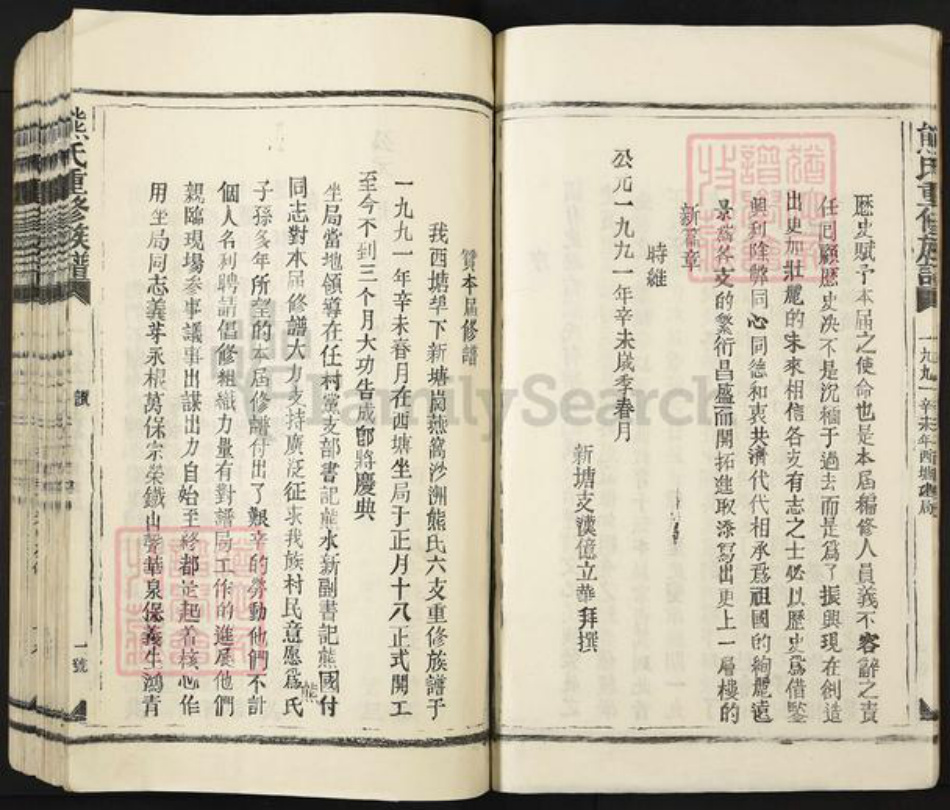 熊氏重修族譜
一九九一辛未年西塘
歷史賦予本屆之使命也是本屆編修人員義不容辭之責
任回顧歷史決不是沉緬于過去而是爲了振興現在創造
出更加壯麗的未來相信各支有志之士必以歷史爲借鑒
興利除弊同心同德和衷共濟代代相承爲祖國的絢麗遠
景爲各支的繁衍昌盛而開拓進取添寫出更上一層樓的
新篇章
時維
公元一九九一年辛未歲季春月
新塘支漢億立華拜撰
贊本屆修譜
我西塘垾下新塘崗燕窩沙洲熊氏六支重修族譜于
一九九一年辛未春月在西塘坐局于正月十八正式開工
至今不到三個月大功告成卽將慶典
坐局當地領導在任村黨支部書記熊水新副書記熊國付
同志對本屆修譜大力支持廣泛征求我族村民意愿爲熊氏
子孫多年所望的本屆修譜付出了艱辛的勞動他們不計
個人名利聘請倡修組織力量有對譜局工作的進展他們
親臨現場參事議事出謀出力自始至終都是起着核心作
用坐局同志義芽永根萬保宗榮鐵山聲華泉保義生鴻青
熊氏重修族譜
一號
FamilySearch